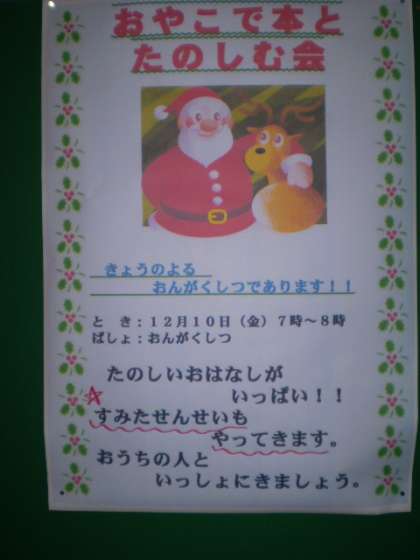 おやこで本と
たのしむ会
きょうのよる
おんがくしつであります！！
と　き：１２月１０日（金）７時～８時
ばしょ：おんがくしつ
たのしいおはなしが
いっぱい！！
すみたせんせいも
やってきます。
おうちの人と
いっしょにきましょう。